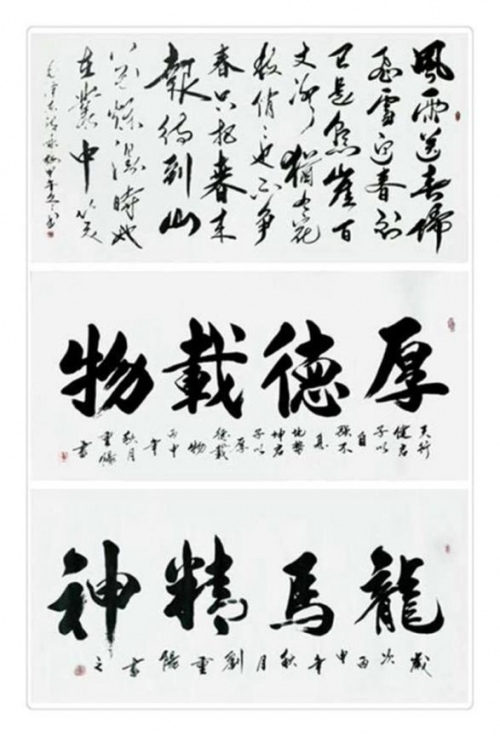 風雨送春歸
飛雪迎春到
已是懸崖百
丈冰猶有花
枝俏俏也不爭
春只把春来
報待到山
花爛漫時她
在叢中笑
毛澤東詠梅甲午冬書
厚德載物
天行
健君
子以
自
强不
息
地勢
坤君
子以
厚
德載
物
丙申
年
秋月
重陽
書
龍馬精神
歲次丙申年秋月劉重陽書之